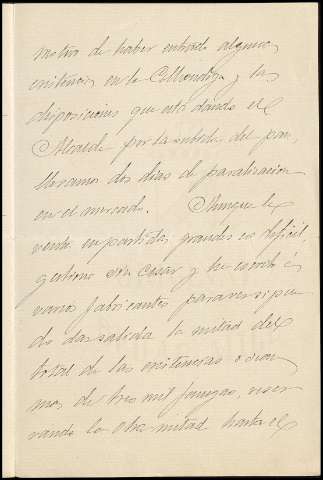 motivo de haber entrado algunas
existencias en la Alhondiga y las
disposiciones que está dando el
Alcalde por la subida del pan,
llevamos dos dias de paralizacion
en el mercado. Aunque la
venta en partidas grandes es dificil,
gestiono sin cesar y he escrito á
varios fabricantes para ver si pue
do dar salida la mitad del
total de las existencias o sean
mas de tres mil fanegas, reser
vando la otra mitad hasta el